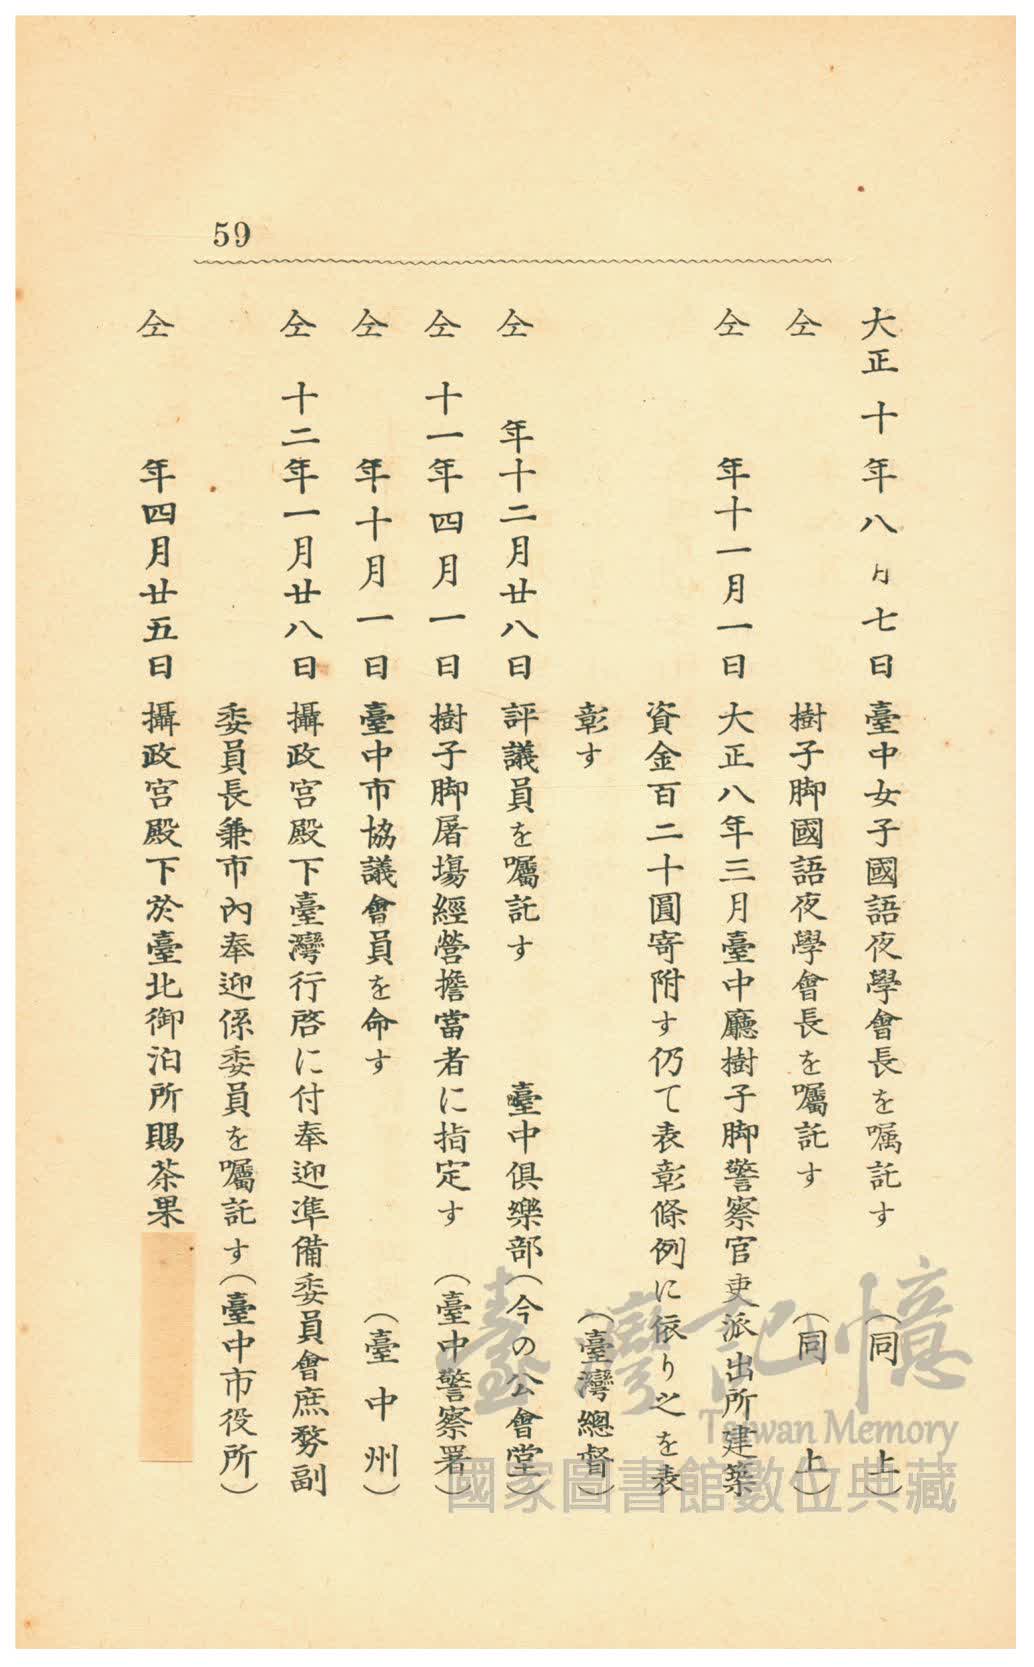 59
大正十年八月七日臺中女子國語夜學會長を嘱託す(同上)
仝樹子脚國語夜學會長を囑託す(同上)
仝年十一月一日大正八年三月臺中廳樹子脚警察官吏派出所建築
資金百二十圓寄附す仍て表彰條例に依り之を表
彰す(臺灣總督)
仝年十二月廿八日評議員を囑託す臺中俱樂部(今の公會堂)
仝十一年四月一日樹子脚屠塲經營擔當者に指定す(臺中警察署)
仝年十月一日臺中市協議會員を命す(臺中州)
仝十二年一月廿八日攝政宮殿下臺灣行啓に付奉迎準備委員會庶務副
委員長兼市內奉迎係委員を囑託す(臺中市役所)
仝年四月廿五日攝政宮殿下於臺北御泊所賜茶果
臺灣記憶
Taiwan Memory
國家圖書館數位典藏